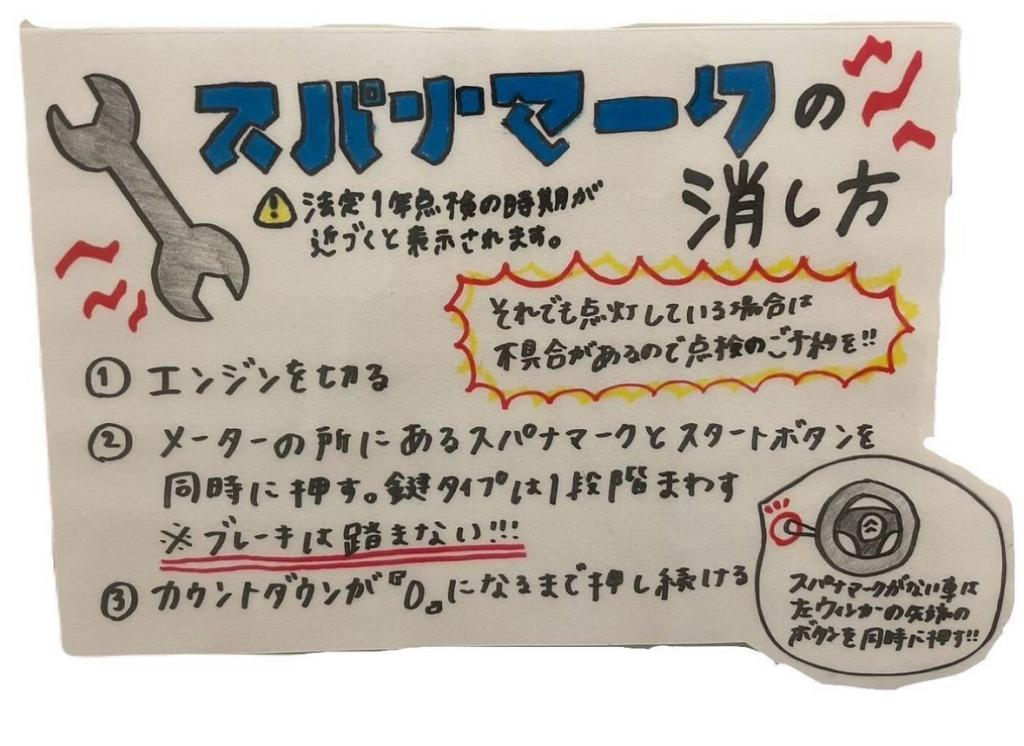 スパナマークの
消し方
法定1年点検の時期が
近づくと表示されます。
それでも点灯している場合は
不具合があるので点検のご予約を!!
① エンジンを切る
② メーターの所にあるスパナマークとスタートボタンを
同時に押す。鍵タイプは1段階まわす
※ブレーキは踏まない!!!
③ カウントダウンが『0』になるまで押し続ける
スパナマークがない車は
左ウィンカーの先端の
ボタンを同時に押す!!